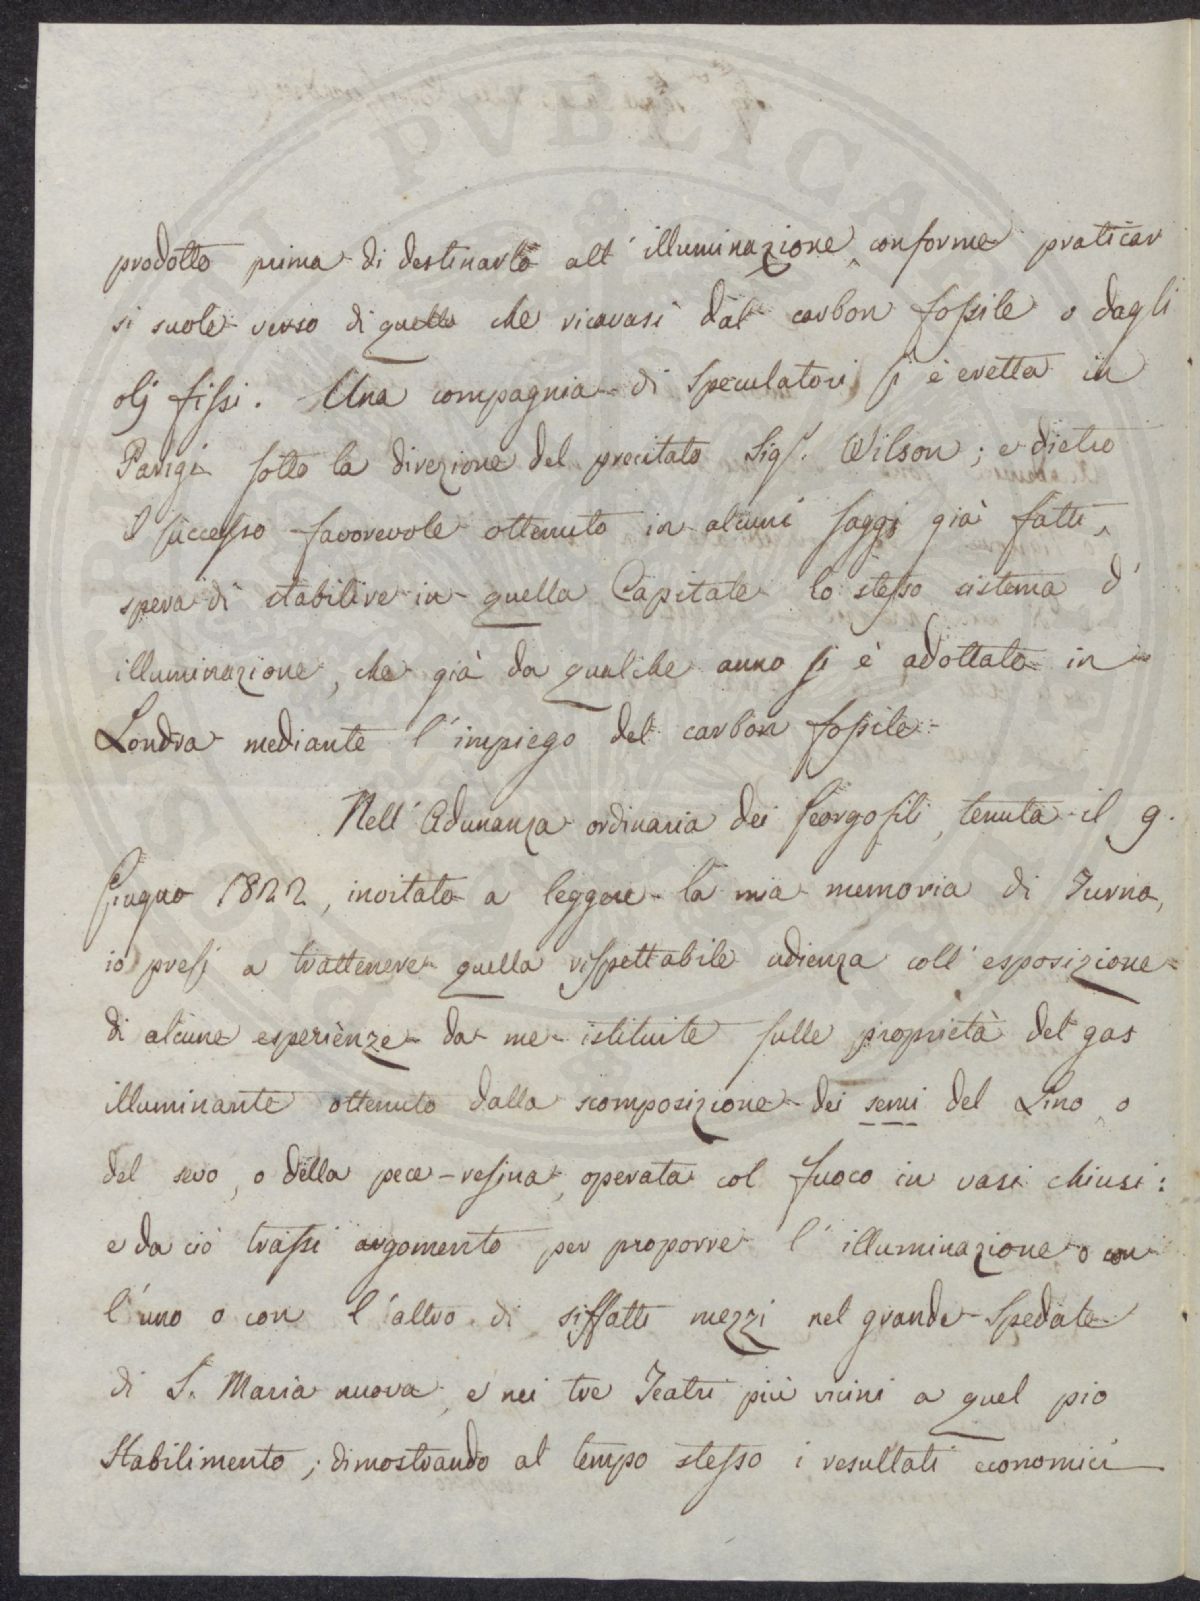 prodotto prima di destinarlo all'illuminazione, conforme praticar
si suole verso di quello che ricavasi dal carbon fossile o dagli
olj fissi. Una compagnia di Speculatori si è eretta in
Parigi sotto la direzione del precitato Sigr. Wilson; e dietro
il successo favorevole ottenuto in alcuni saggi già fatti,
spera di stabilire in quella Capitale lo stesso sistema d'
illuminazione, che già da qualche anno si è adottato in
Londra mediante l'impiego del carbon fossile.
Nell'Adunanza ordinaria dei Georgofili, tenuta il 9.
Giugno 1822, invitato a leggere la mia memoria di Turno,
io presi a trattenere quella rispettabile udienza coll'esposizione
di alcune esperienze da me istituite sulle proprietà del gas
illuminante ottenuto dalla scomposizione dei semi del Lino, o
del sevo, o della pece-resina, operata col fuoco in vasi chiusi:
e da ciò trassi argomento per proporre l'illuminazione o con
l'uno o con l'altro di siffatti mezzi nel grande Spedale
di S. Maria nuova, e nei tre Teatri più vicini a quel pio
Stabilimento; dimostrando al tempo stesso i resultati economici
PVBLICA